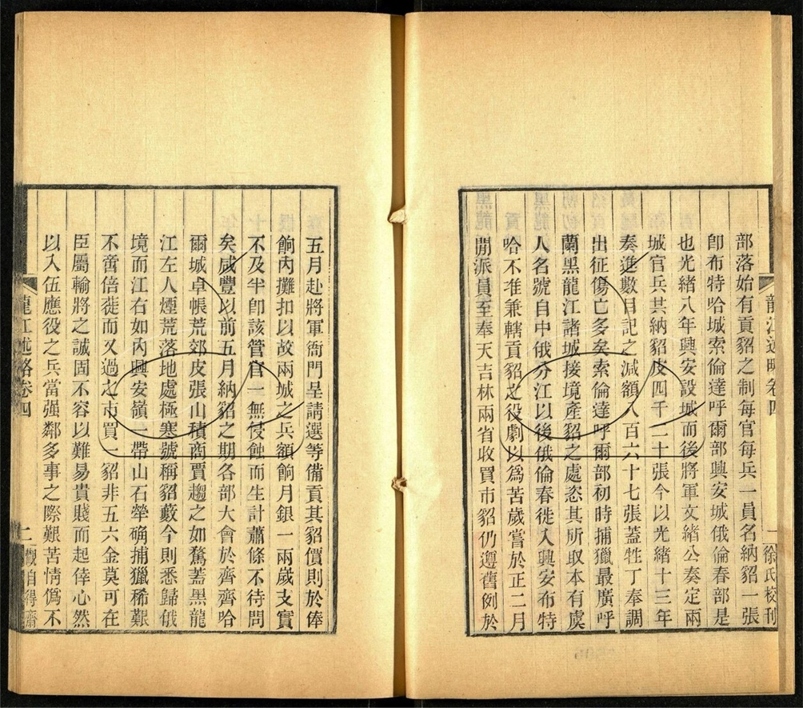 部落始有貢貂之制每官每兵一員名納貂一張
卽布特哈城索倫達呼爾部興安城俄倫春部是
也光緖八年興安設城而後將軍文緖公奏定兩
城官兵共納貂皮四千二十張今以光緖十三年
奏進數目記之減額八百六十七張蓋牲丁奉調
出征傷亡多矣索倫達呼爾部初時捕獵最廣呼
蘭黑龍江諸城接境產貂之處恣其所取本有虞
人名號自中俄分江以後俄倫春徙入興安布特
哈不准兼轄貢貂之役劇以為苦歲嘗於正二月
閒派員至奉天吉林兩省收買市貂仍遵舊例於
龍江述略卷四
一
徐氏校刊
五月赴將軍衙門呈請選等備貢其貂價則於俸
餉內攤扣以故兩城之兵額餉月銀一兩歲支實
不及半卽該管官一無侵蝕而生計蕭條不待問
矣咸豐以前五月納貂之期各部大會於齊齊哈
爾城卓帳荒郊皮張山積商賈趨之如鶩蓋黑龍
江左人煙荒落地處極寒號稱貂藪今則悉歸俄
境而江右如內興安嶺一帶山石犖确捕獵稀艱
不啻倍蓰而又過之市買一貂非五六金莫可在
臣屬輸將之誠固不容以難易貴賤而起倖心然
以入伍應役之兵當強鄰多事之際艱苦情偽不
龍江述略卷四
二
觀自得齋